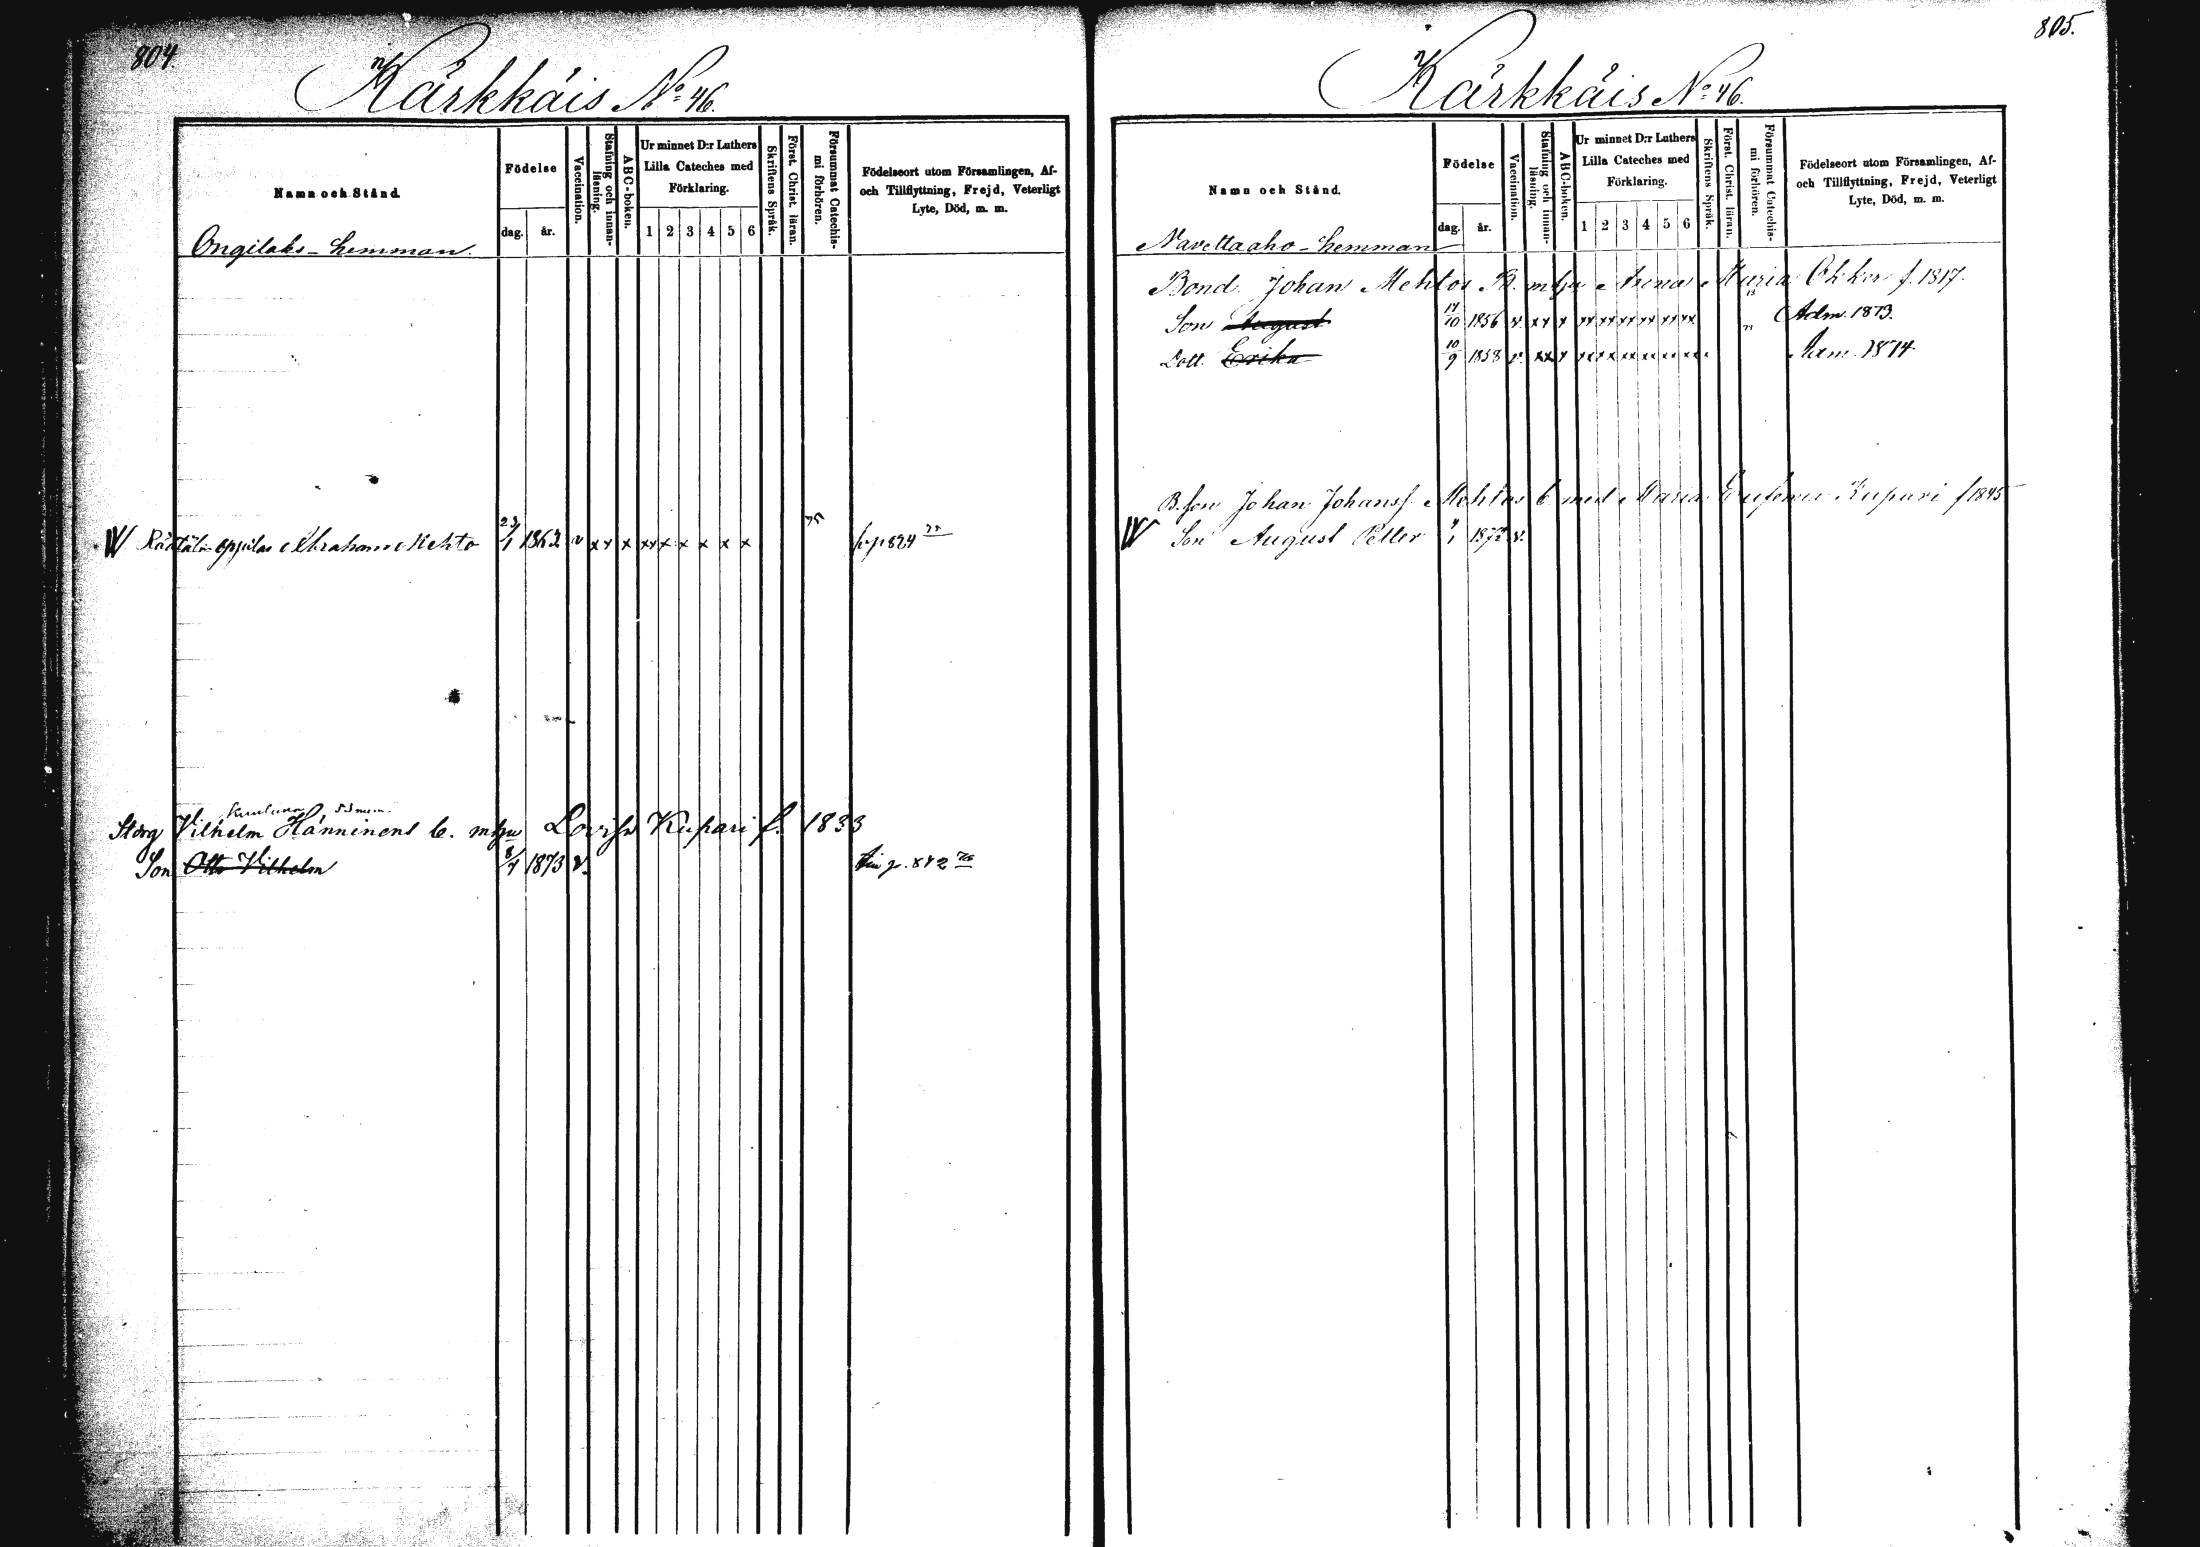 804.
Kärkkäis No 46.
Namn och Stånd.
Födelse
dag.
år.
Vaccination.
Stafning och innan-läsning.
ABC-boken.
Ur minnet D:r Luthers
Lilla Cateches med
Förklaring.
1 2 3 4 5 6
Skriftens Språk.
Först. Christ. läran.
Försummat Catechis-mi förhören.
Födelseort utom Församlingen, Af-
och Tillflyttning, Frejd, Veterligt
Lyte, Död, m. m.
Ongilaks-hemman.
Räätälin oppilas Abraham Mehto 23/1 1862 v xx x xx x x x x x 75
Storg Vilhelm Hänninens b. m hu Lovisa Kupari f. 1833
Son Otto Vilhelm 8/4 1873 v.
805.
Kärkkäis No 46.
Namn och Stånd.
Födelse
dag.
år.
Vaccination.
Stafning och innan-läsning.
ABC-boken.
Ur minnet D:r Luthers
Lilla Cateches med
Förklaring.
1 2 3 4 5 6
Skriftens Språk.
Först. Christ. läran.
Försummat Catechis-mi förhören.
Födelseort utom Församlingen, Af-
och Tillflyttning, Frejd, Veterligt
Lyte, Död, m. m.
Navettaaho-hemman
Bond. Johan Mehtos B. m hu Anna Maria Okker f. 1817.
Son August 1856 v. xx x xx xx xx xx xx xx Adm. 1873.
Dott. Erika 10/9 1858 v. xx x Adm. 1874
B. son Johan Johanss. Mehtos b med Maria Eufemia Kupari f 1845
Son August Petter 1872 v.